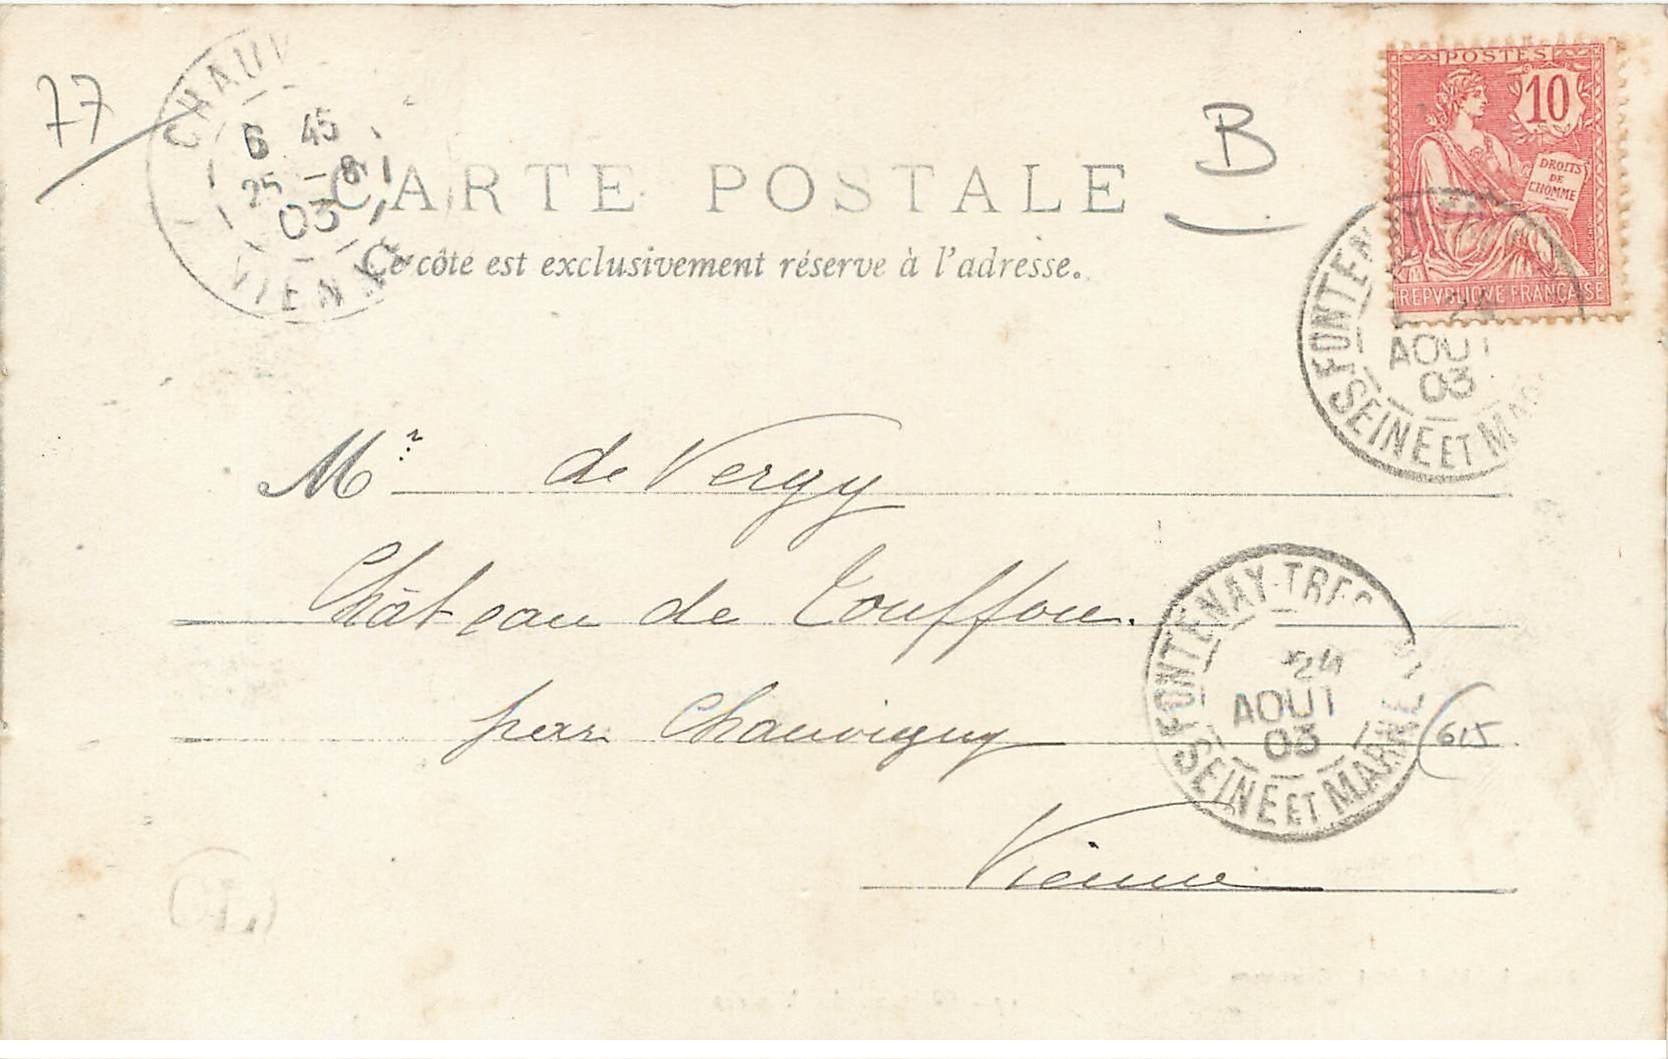 77
CHAUV
6 45
25 - 8
03
VIENNE
CARTE POSTALE
Ce côté est exclusivement réservé à l'adresse.
B
POSTES
10
DROITS
DE
L'HOMME
REPVBLIQVE FRANÇAISE
FONTEN
24
AOUT
03
SEINE ET MAR
Mr de Vergy
Château de Touffou.
par Chauvigny
Vienne
FONTENAY-TRES
24
AOUT
03
SEINE ET MARNE
615